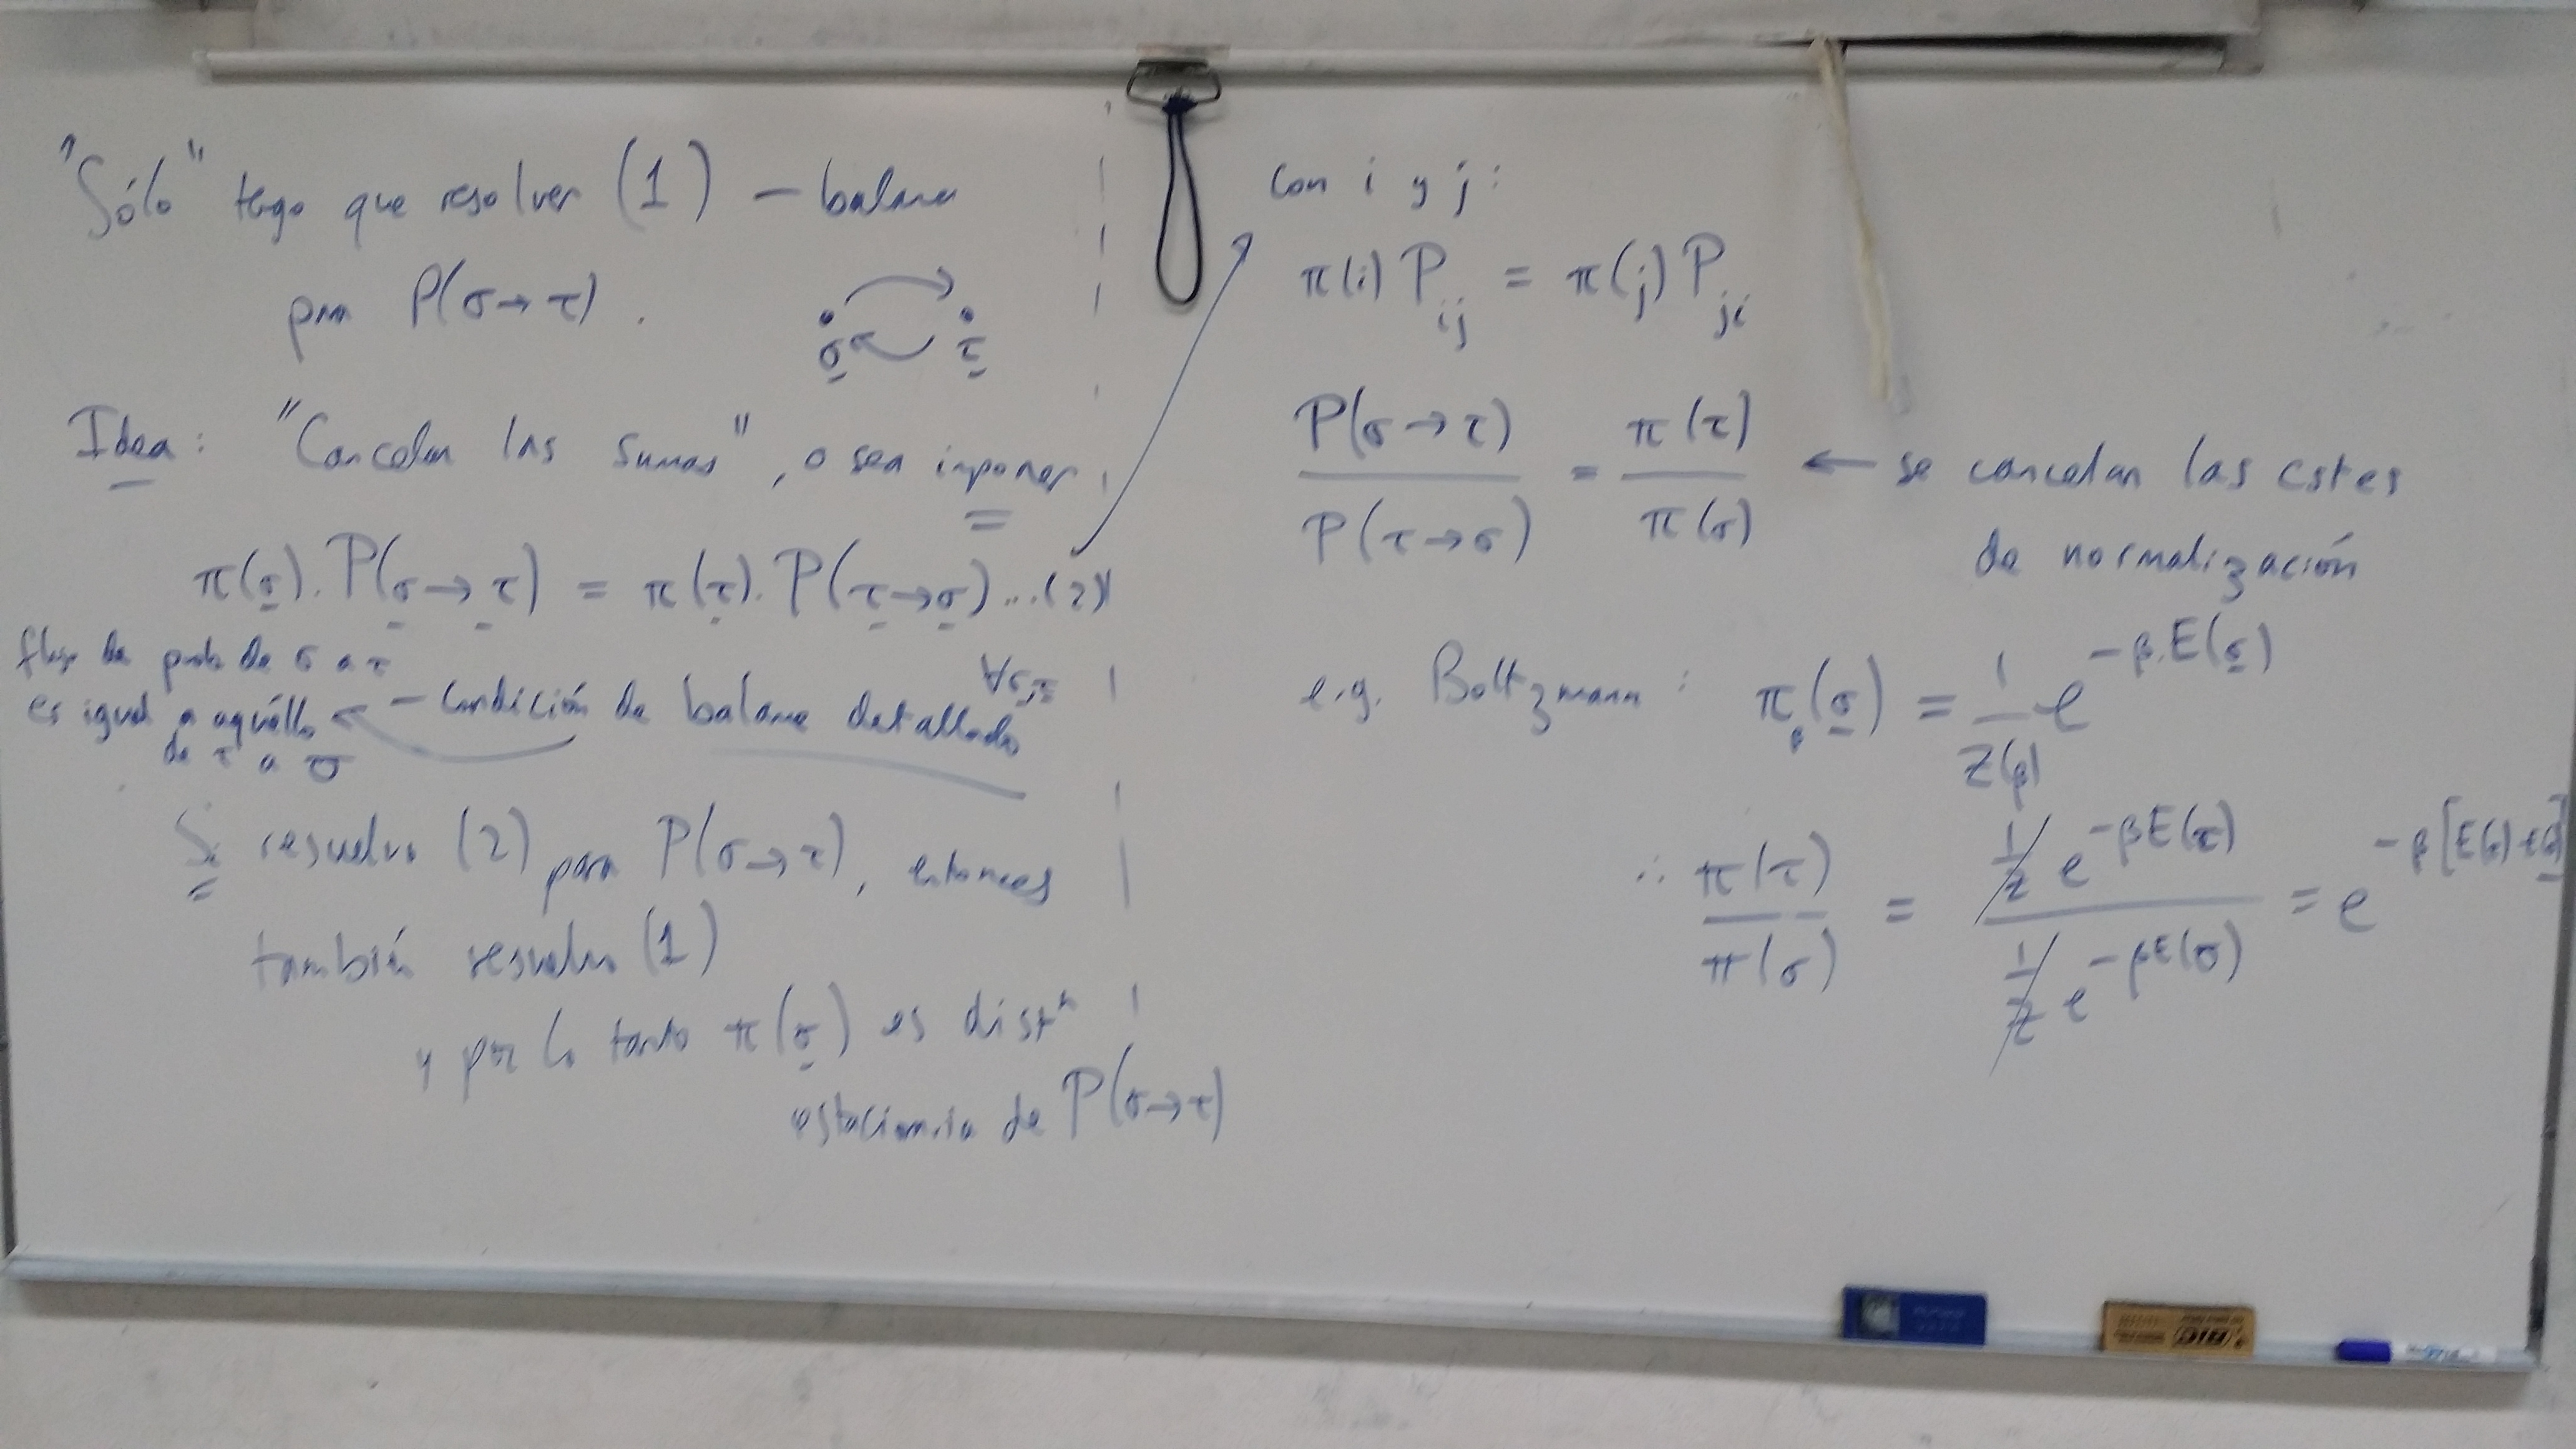 "Sólo" tengo que resolver (1) – balance
para P(σ→τ).
σ τ
Idea: "Cancelar las sumas", o sea imponer
π(σ).P(σ→τ) = π(τ).P(τ→σ)...(2)
∀σ,τ
flujo de prob de σ a τ
es igual a aquéllo
de τ a σ
– Condición de balance detallado
Si resuelvo (2) para P(σ→τ), entonces
también resuelvo (1)
y por lo tanto π(σ) es distⁿ
estacionaria de P(σ→τ)
con i y j:
π(i) P_ij = π(j) P_ji
P(σ→τ) / P(τ→σ) = π(τ) / π(σ) ← se cancelan las cstes
de normalización
e.g. Boltzmann: π_β(σ) = 1/Z(β) e^{-β.E(σ)}
∴ π(τ) / π(σ) = 1/Z e^{-βE(τ)} / 1/Z e^{-βE(σ)} = e
BIC